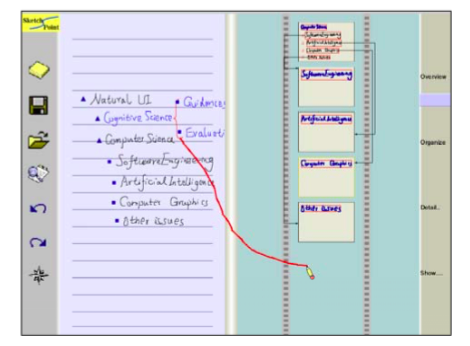 Sketch
Point
Natural UI
Guidences
Cognitive Science
Evaluati
Computer Science
Software Engineering
Artificial Intelligence
Computer Graphics
Other issues
Software Engineering
Artificial Intelligence
Computer Graphics
Other Issues
Software Engineering
Artificial Intelligence
Computer Graphics
Other Issues
Overview
Organize
Detail..
Show...